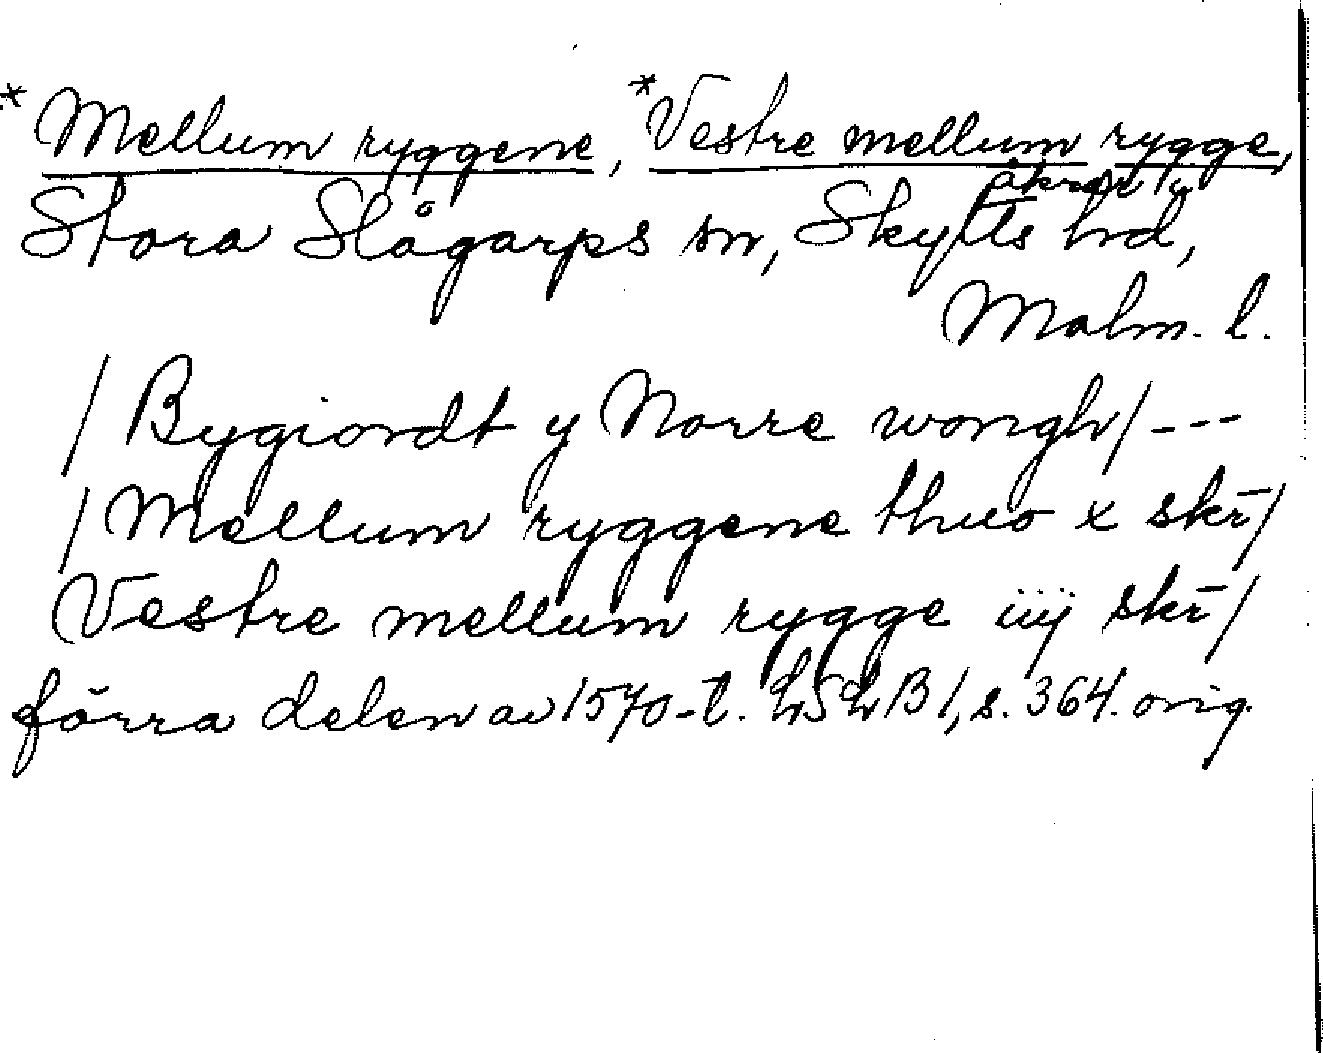 *Mellum ryggene, *Vestre mellum rygge,
åkrar i
Stora Slågarps sn, Skytts hd,
Malm. l.
/ Bygiordt y Norre wongh/ ---
/ Mellum ryggene thuo x skr̄/
Vestre mellum rygge iiij skr̄/
förra delen av 1570-t. LSLB 1, s. 364. orig.